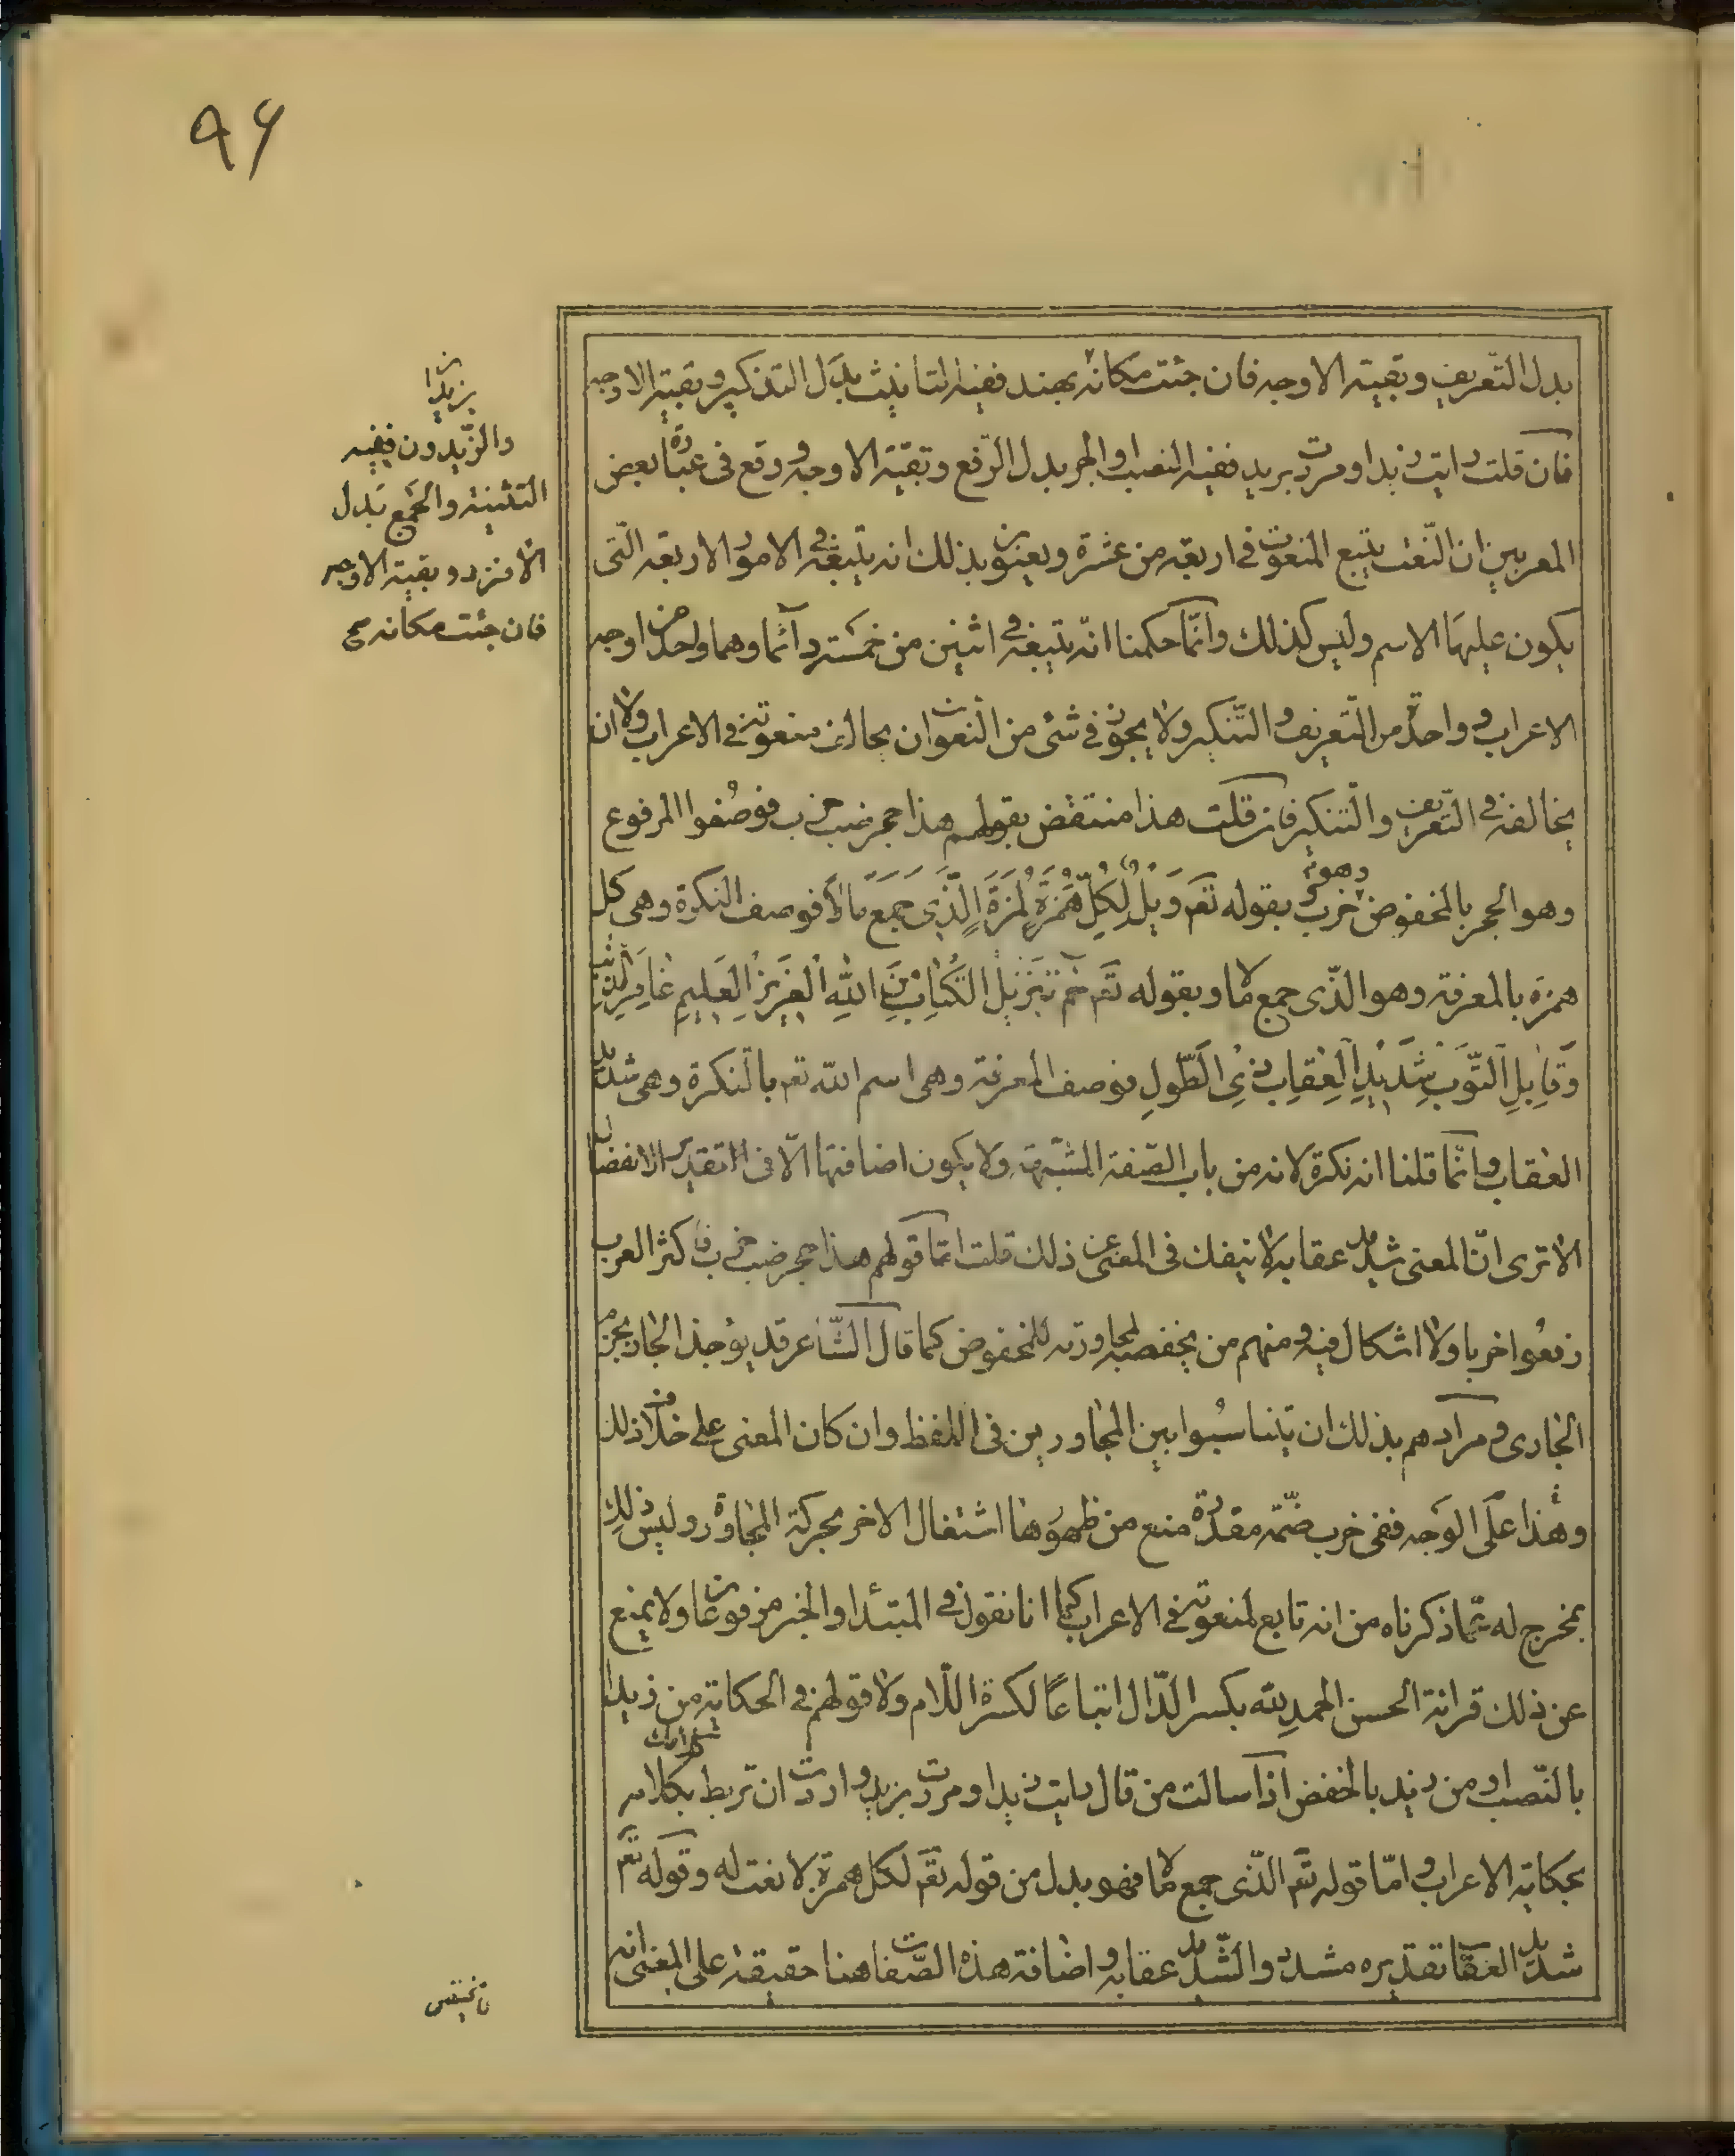 ٩۶
بدل التعريف وبقية الاوجه فان جئت مكانه بهند ففيه التانيث بدل التذكير وبقية الاوجه
فان قلت رايت زيدا ومررت بزيد ففيه النصب او الجر بدل الرفع وبقية الاوجه ووقع فى عبارة بعض
المعربين ان النعت يتبع المنعوت فى اربعة من عشرة ويعنون بذلك انه يتبعه فى الامور الاربعة التى
يكون عليها الاسم وليس كذلك وانما حكمنا انه يتبعه فى اثنين من خمسة دائما وهما واحد من اوجه
الاعراب وواحد من التعريف والتنكير ولا يجوز فى شئ من النعوت ان يخالف منعوته فى الاعراب ولا ان
يخالفه فى التعريف والتنكير فان قلت هذا منتقض بقولهم هذا حجر ضب خرب فوصفوا المرفوع
وهو الحجر بالمخفوض وهو خرب وبقوله تعم وَيْلٌ لِكُلِّ هُمَزَةٍ لُمَزَةٍ اَلَّذِى جَمَعَ مَالًا فوصف النكرة وهى كل
همزة بالمعرفة وهو الذى جمع مالا وبقوله تعم حم تَنْزِيلُ الْكِتَابِ مِنَ اللهِ الْعَزِيزِ الْعَلِيمِ غَافِرِ الذَّنْبِ
وَقَابِلِ التَّوْبِ شَدِيدِ الْعِقَابِ ذِى الطَّوْلِ فوصف المعرفة وهى اسم الله تعم بالنكرة وهى شديد
العقاب وانما قلنا انه نكرة لانه من باب الصفة المشبهة ولا يكون اضافتها الا فى التقدير الانفصال
الا ترى ان المعنى شديد عقابه لا ينفك فى المعنى عن ذلك قلت اما قولهم هذا حجر ضب خرب فاكثر العرب
رفعوا خربا ولا اشكال فيه ومنهم من يخفضه لمجاورته للمخفوض كما قال الشاعر قد يؤخذ الجار بجرم
الجارى ومرادهم بذلك ان يتناسبوا بين المجاورين فى اللفظ وان كان المعنى على خلاف ذلك
وهذا على الوجه ففى خرب ضمة مقدرة منع من ظهورها اشتغال الاخر بحركة المجاورة وليس ذلك
بمخرج له عما ذكرناه من انه تابع لمنعوته فى الاعراب كما انا نقول فى المبتدا والخبر مرفوعان ولا يمنع
عن ذلك قرائة الحسن الحمدِ لله بكسر الدال اتباعًا لكسرة اللام ولا قولهم فى الحكاية من زيدا
بالنصب او من زيد بالخفض اذا سالت من قال رايت زيدا ومررت بزيد واردت ان تربط كلامك بكلامه
بحكاية الاعراب واما قوله تعم الذى جمع مالا فهو بدل من قوله تعم لكل همزة لا نعت له وقوله تعم
شديد العقاب تقديره مشدد والشديد عقابه واضافة هذه الصفات هنا حقيقة على المعنى انه
بزيدان
والزيدون ففيه
التثنية والجمع بدل
الافراد وبقية الاوجه
فان جئت مكانه صح